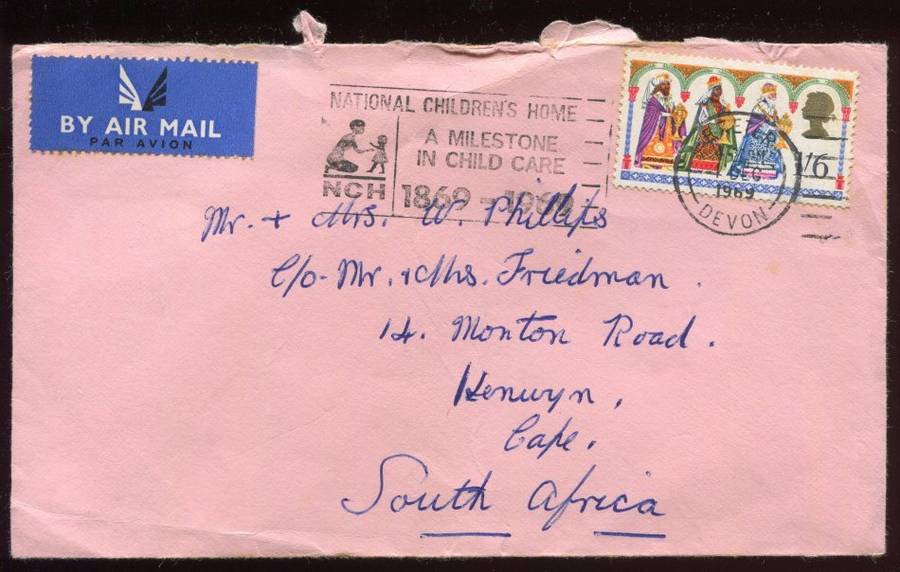 BY AIR MAIL
PAR AVION
NATIONAL CHILDREN'S HOME
A MILESTONE
IN CHILD CARE
NCH
1869 - 1969
1'6
DEC
1969
DEVON
Mr. + Mrs. W. Phillips
C/o - Mr. + Mrs. Friedman.
14. Monton Road.
Kenwyn,
Cape.
South Africa